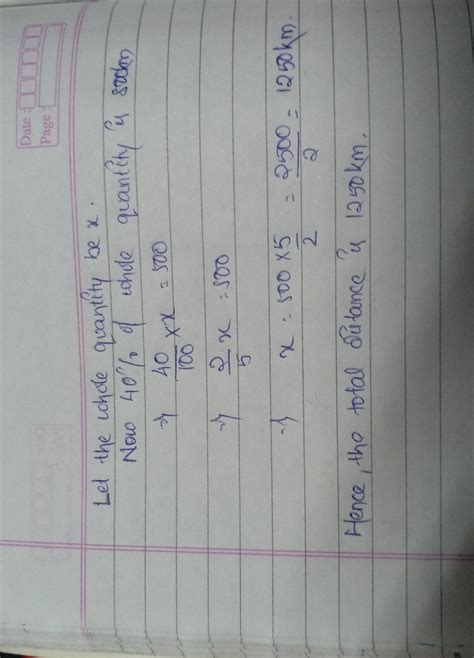 Date :
Page :
Let the whole quantity be x.
Now 40% of whole quantity is 500km
⇒ 40/100 × x = 500
⇒ 2/5 x = 500
⇒ x = 500 × 5/2 = 2500/2 = 1250km.
Hence, the total distance is 1250km.